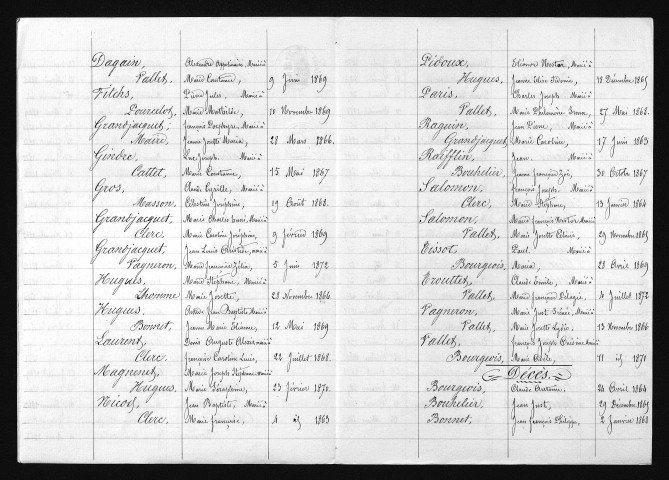 Dagain, Alexandre Appolinaire, Marié à
Vallet. Marie Constance, 9 Juin 1869
Filchs, Pierre Jules. Marié à
Pourcelot, Marie Mathilde, 10 Novembre 1869
Grandjacquet, François Porphyre, Marié à
Maire, Jeanne Josette Maria, 28 Mars 1866.
Gindre, Luc Joseph. Marié à
Cattet, Marie Constance, 15 Mai 1867
Gros, Claude Cyrille, Marié à
Masson, Célestine Joséphine, 19 Août 1863.
Grandjacquet, Marie Charles Henri, Marié à
Clerc, Marie Caroline Joséphine, 9 février 1869
Grandjacquet, Jean Louis Christin, marié à
Vagneron, Marie Françoise Zélia, 5 Juin 1872
Hugues, Marie Stéphane, Marié à
Lhomme Marie Josette, 23 Novembre 1866
Hugues Jean Baptiste Marié à
Bonnet, Jeanne Marie Etienne, 12 Mai 1869
Laurent, Denis Auguste Alexis marié à
Clerc, françoise Caroline Lucie, 22 Juillet 1868.
Magnenet, Marie Joseph Stéphane marié à
Hugues, Marie Séraphine, 23 février 1870.
Nicod, Jean Baptiste, Marié à
Clerc, Marie françoise, 4 id 1863
Pidoux, Marié à
Hugues, 18 Décembre 1865
Paris, Charles Joseph Marié à
Vallet, Marie Philomène Emma, 27 Mai 1868.
Raguin, Jean Pierre, Marié à
Grandjacquet, Marie Caroline, 17 Juin 1863
Raffin, Jean. Marié à
Bouhelier, Jeanne françoise Zoé, 30 Octobre 1867
Salomon, françois Joseph. Marié à
Clerc, Marie Stéphanie, 13 Janvier 1864
Salomon, Marie françois Nestor Marié à
Vallet, Marie Josette Célinie, 29 Novembre 1865
Tissot, Paul. Marié à
Bourgeois, Maria, 28 Avril 1869
Trouttet, Claude Emile, Marié à
Vallet, Marie françoise Pélagie, 4 Juillet 1872
Vagneron, Marie Just Irénée, Marié à
Vallet, Marie Josette Lydie, 13 Novembre 1866
Vallet, françois Joseph marié à
Bourgeois, Marie Adèle, 11 id 1871
Décès.
Bourgeois, Claude Antoine, 24 Avril 1864
Bouhelier, Jean Just, 29 Décembre 1865
Bonnet, Jean François Philippe, 2 Janvier 1863